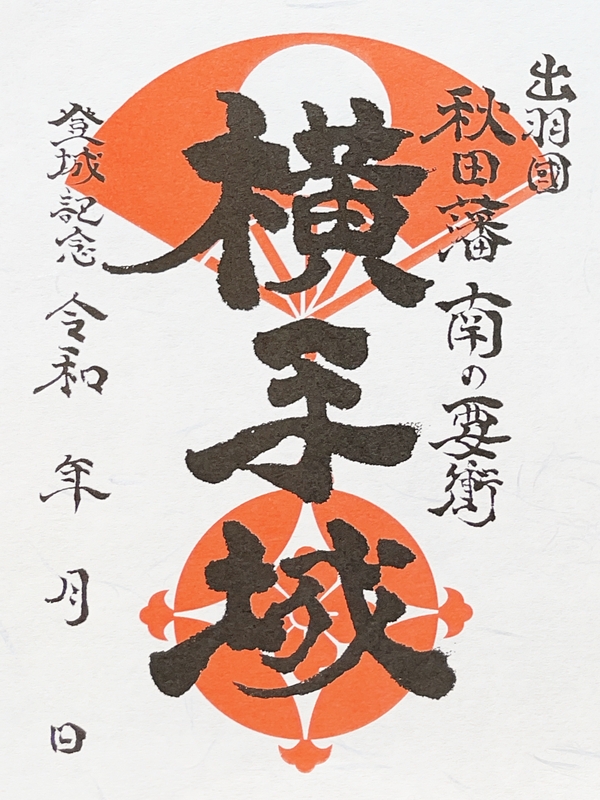 出羽國
秋田藩 南の要衝
横手城
登城記念 令和 年 月 日